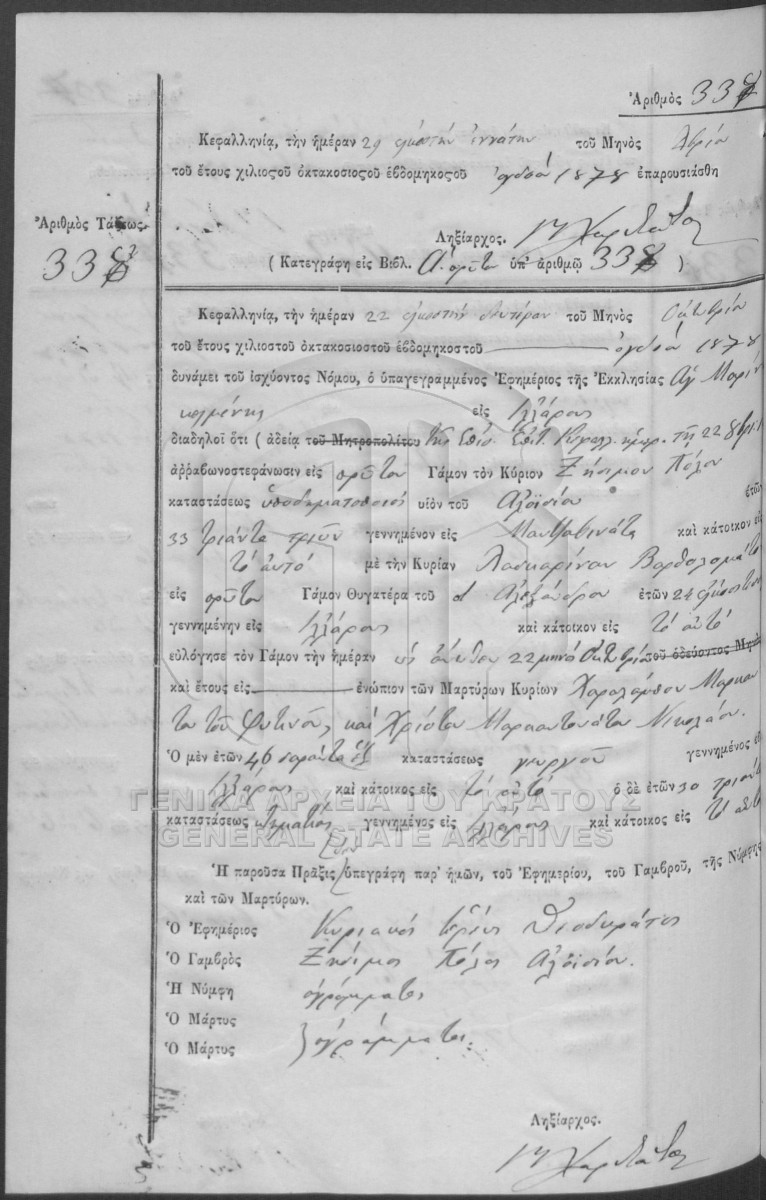 Ἀριθμὸς 338
Κεφαλληνίᾳ, τὴν ἡμέραν 29 εἰκοστήν ἐννάτην τοῦ Μηνὸς 8βρίου
τοῦ ἔτους χιλιοςοῦ ὀκτακοσιοςοῦ ἑβδομηκοςοῦ ὀγδόου 1878 ἐπαρουσιάσθη
Ἀριθμὸς Τάξεως.
338
Ληξίαρχος.
( Κατεγράφη εἰς Βιβλ. Α. πρῶτον ὑπ' ἀριθμῷ 338 )
Κεφαλληνίᾳ, τὴν ἡμέραν 22 εἰκοστήν δευτέραν τοῦ Μηνὸς Ὀκτωβρίου
τοῦ ἔτους χιλιοστοῦ ὀκτακοσιοστοῦ ἑβδομηκοστοῦ ὀγδόου 1878
δυνάμει τοῦ ἰσχύοντος Νόμου, ὁ ὑπαγεγραμμένος Ἐφημέριος τῆς Ἐκκλησίας Ἁγ Μαρίν
εἰς Ἰλάρους
διαδηλοῖ ὅτι ( ἀδείᾳ τοῦ Μητροπολίτου τῆς Ἐπισ. Ἐπιτ. Κεφαλλ. ἡμερ. τῇ 22 8βρίου
ἀῤῥαβωνοστεφάνωσιν εἰς πρῶτον Γάμον τὸν Κύριον Ζήσιμον Πόλον
καταστάσεως ὑποδηματοποιός υἱὸν τοῦ Ἀλοϊσίου ἐτῶν
33 τριάντα τριῶν γεννημένον εἰς Μαντζαβινάτα καὶ κάτοικον εἰς
τό αὐτό μὲ τὴν Κυρίαν Λασκαρίναν Βαρθολομάτου
εἰς πρῶτον Γάμον Θυγατέρα τοῦ Ἀλεξάνδρου ἐτῶν 24
γεννημένην εἰς Ἰλάρους καὶ κάτοικον εἰς τό αὐτό
εὐλόγησε τὸν Γάμον τὴν ἡμέραν ὡς ἄνωθεν 22 μηνός Ὀκτωβρίου τοῦ ὁδεύοντος Μηνὸς
καὶ ἔτους εἰς ἐνώπιον τῶν Μαρτύρων Κυρίων Χαραλάμπου Μαρκαν
του τοῦ Φωτεινοῦ, καί Χρίστου Μαρκαντωνάτου Νικολάου.
Ὁ μὲν ἐτῶν 46 σαράντα ἕξ καταστάσεως γεωργοῦ γεννημένος εἰς
Ἰλάρους καὶ κάτοικος εἰς τό αὐτό ὁ δὲ ἐτῶν 30 τριάντα
καταστάσεως κτηματίας γεννημένος εἰς Ἰλάρους καὶ κάτοικος εἰς τό αὐτό
ΓΕΝΙΚΑ ΑΡΧΕΙΑ ΤΟΥ ΚΡΑΤΟΥΣ
GENERAL STATE ARCHIVES
Ἡ παροῦσα Πρᾶξις ὑπεγράφη παρ' ἡμῶν, τοῦ Ἐφημερίου, τοῦ Γαμβροῦ, τῆς Νύμφης
καὶ τῶν Μαρτύρων.
Ὁ Ἐφημέριος Κυριακός Ἱερεύς Θεοδωράτος
Ὁ Γαμβρὸς Ζήσιμος Πόλος Ἀλοϊσίου.
Ἡ Νύμφη ἀγράμματη
Ὁ Μάρτυς
Ὁ Μάρτυς ἀγράμματοι.
Ληξίαρχος.